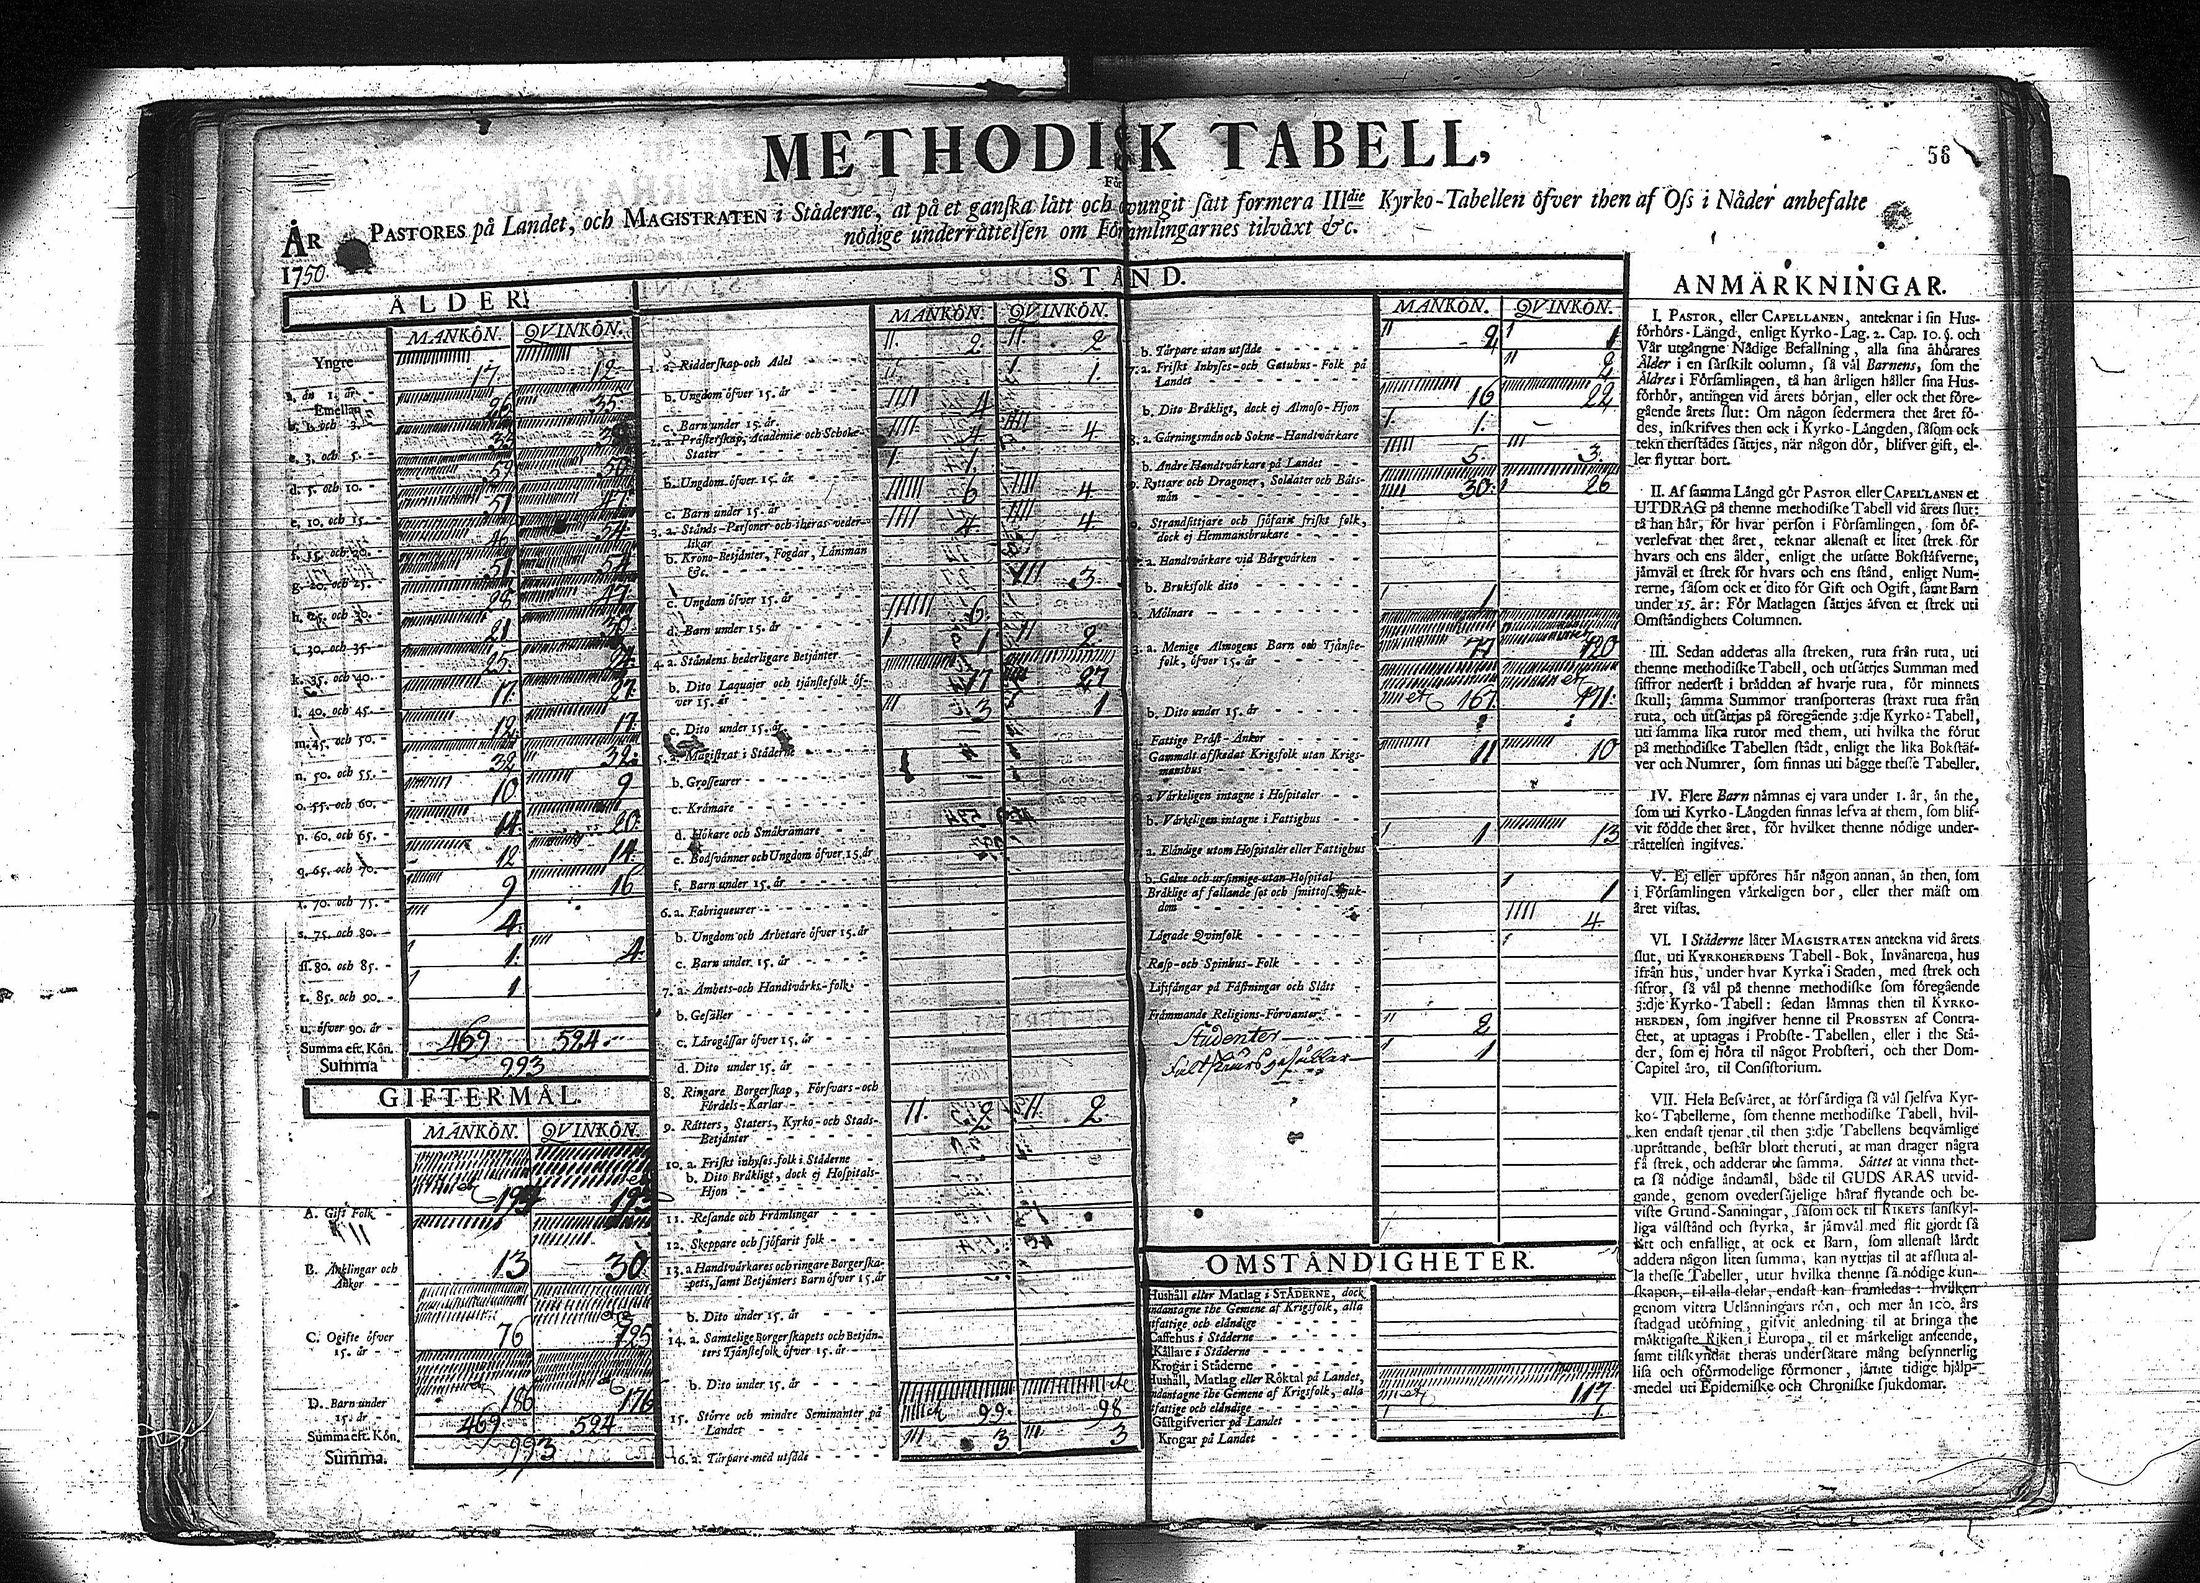 METHODISK TABELL,
56
För
PASTORES på Landet, och MAGISTRATEN i Städerne, at på et ganska lått och otvungit sått formera IIIdie Kyrko-Tabellen öfver then af Oss i Nåder anbefalte
nödige underråttelsen om Församlingarnes tilväxt &c.
ÅR
1750.
ÅLDER.
MANKÖN. QVINKÖN.
Yngre
a. än 1. år 17. 12.
Emellan
b. 1. och 3. 26. 35.
c. 3. och 5.
d. 5. och 10. 59. 50.
e. 10. och 15. 51 47.
f. 15. och 20. 54.
g. 20. och 25. 51. 54.
h. 25. och 30. 28. 47.
i. 30. och 35. 21
k. 35. och 40. 25. 24.
l. 40. och 45. 17. 27.
m. 45. och 50. 12. 17.
n. 50. och 55. 32. 32.
o. 55. och 60. 10. 9
p. 60. och 65. 14. 20.
q. 65. och 70. 12 14.
r. 70. och 75. 9 16
s. 75. och 80. 4.
ss. 80. och 85. 1. 4.
t. 85. och 90. 1
u. öfver 90. år
Summa eft. Kön. 469 524.
Summa 993
GIFTERMÅL.
MANKÖN. QVINKÖN.
A. Gift Folk 193
B. Änklingar och 13 30.
Änkor
C. Ogifte öfver 76 125
15. år
D. Barn under 186 176
15. år
Summa eft. Kön. 469 524
Summa. 993
STÅND.
MANKÖN. QVINKÖN.
1. a. Ridderskap och Adel 2. 2
b. Ungdom öfver 15. år 1.
c. Barn under 15. år 4
2. a. Prästerskap, Academiæ och Schole-
Stater 4. 4.
b. Ungdom öfver 15. år 1.
c. Barn under 15. år 6 4.
3. a. Stånds-Personer och theras veder-
likar 4. 4.
b. Krono-Betjänter, Fogdar, Länsmän
&c.
c. Ungdom öfver 15. år 3.
d. Barn under 15. år 6
4. a. Ståndens hederligare Betjänter 1 2
b. Dito Laquajer och tjänstefolk öf-
ver 15. år 17 27
c. Dito under 15. år 3 1
5. a. Magistrat i Städerne
b. Grosseurer
c. Krämare
d. Hökare och Småkrämare
e. Bodsvänner och Ungdom öfver 15. år
f. Barn under 15. år
6. a. Fabriqueurer
b. Ungdom och Arbetare öfver 15. år
c. Barn under 15. år
7. a. Ämbets- och Handtvärks-folk
b. Gesäller
c. Lärogåssar öfver 15. år
d. Dito under 15. år
8. Ringare Borgerskap, Försvars- och
Fördels-Karlar
9. Råtters, Staters, Kyrko- och Stads- 2 2
Betjänter
10. a. Friskt inhyses-folk i Städerne
b. Dito Bräkligt, dock ej Hospitals-
Hjon
11. Resande och Främlingar
12. Skeppare och sjöfarit folk
13. a Handtvärkares och ringare Borgerska-
pets, samt Betjänters Barn öfver 15. år
b. Dito under 15. år
14. a. Samtelige Borgerskapets och Betjän-
ters Tjänstefolk öfver 15. år
b. Dito under 15. år
15. Större och mindre Seminanter på 99. 98
Landet
16. a. Tårpare med utsäde 3 3
MANKÖN. QVINKÖN.
b. Tårpare utan utsäde 2 1
7. a. Friskt Inhyses- och Gatuhus-Folk på 2
Landet
b. Dito Bräkligt, dock ej Almoso-Hjon 16 22
8. a. Gärningsmän och Sokne-Handtvärkare 1.
b. Andre Handtvärkare på Landet 5. 3.
Ryttare och Dragoner, Soldater och Båts- 30. 26
män
Strandsittjare och sjöfarit friskt folk,
dock ej Hemmansbrukare
a. Handtvärkare vid Bärgvärken
b. Bruksfolk dito
Mölnare 1
a. Menige Almogens Barn och Tjänste- 77 120
folk, öfver 15. år
b. Dito under 15. år 167. 171.
Fattige Präst-Änkor
Gammalt afskedat Krigsfolk utan Krigs- 11 10
manshus
a. Värkeligen intagne i Hospitaler
b. Värkeligen intagne i Fattighus
a. Eländige utom Hospitaler eller Fattighus 1 13
b. Galne och ursinnige utan Hospital
Bräklige af fallande sot och smittos. sjuk- 1
dom
Lägrade Qvinfolk 4.
Rasp- och Spinhus-Folk
Lifsfångar på Fästningar och Slått
Främmande Religions-Förvanter
Studenter 2
Fältskiärs gesällar 1
OMSTÄNDIGHETER.
Hushåll eller Matlag i STÄDERNE, dock
undantagne the Gemene af Krigsfolk, alla
utfattige och eländige
Caffehus i Städerne
Källare i Städerne
Krogar i Städerne
Hushåll, Matlag eller Röktal på Landet,
undantagne the Gemene af Krigsfolk, alla 117
utfattige och eländige
Gästgifverier på Landet 1.
Krogar på Landet
ANMÄRKNINGAR.
I. PASTOR, eller CAPELLANEN, anteknar i sin Hus-
förhörs-Längd, enligt Kyrko-Lag. 2. Cap. 10. §. och
Vår utgångne Nådige Befallning, alla sina åhörares
Ålder i en särskilt column, så väl Barnens, som the
Äldres i Församlingen, tå han årligen håller sina Hus-
förhör, antingen vid årets början, eller ock thet före-
gående årets slut: Om någon sedermera thet året fö-
des, inskrifves then ock i Kyrko-Längden, såsom ock
tekn therstädes sättjes, när någon dör, blifver gift, el-
ler flyttar bort.
II. Af samma Längd gör PASTOR eller CAPELLANEN et
UTDRAG på thenne methodiske Tabell vid årets slut:
tå han här, för hvar person i Församlingen, som öf-
verlefvat thet året, teknar allenast et litet strek för
hvars och ens ålder, enligt the utsatte Bokstäfverne,
jämväl et strek för hvars och ens stånd, enligt Num-
rerne, såsom ock et dito för Gift och Ogift, samt Barn
under 15. år: För Matlagen sättjes äfven et strek uti
Omständighets Columnen.
III. Sedan adderas alla streken, ruta från ruta, uti
thenne methodiske Tabell, och utsättjes Summan med
siffror nederst i brädden af hvarje ruta, för minnets
skull; samma Summor transporteras straxt ruta från
ruta, och utsättjas på föregående 3:dje Kyrko-Tabell,
uti samma lika rutor med them, uti hvilka the förut
på methodiske Tabellen stådt, enligt the lika Bokstäf-
ver och Numrer, som finnas uti bägge thesse Tabeller.
IV. Flere Barn nämnas ej vara under 1. år, än the,
som uti Kyrko-Längden finnas lefva af them, som blif-
vit födde thet året, för hvilket thenne nödige under-
rättelsen ingifves.
V. Ej eller upföres här någon annan, än then, som
i Församlingen värkeligen bor, eller ther mäst om
året vistas.
VI. I Städerne låter MAGISTRATEN antekna vid årets
slut, uti KYRKOHERDENS Tabell-Bok, Invånarena, hus
ifrån hus, under hvar Kyrka i Staden, med strek och
sifror, så väl på thenne methodiske som föregående
3:dje Kyrko-Tabell: sedan lämnas then til KYRKO-
HERDEN, som ingifver henne til PROBSTEN af Contra-
ctet, at uptagas i Probste-Tabellen, eller i the Stä-
der, som ej höra til något Probsteri, och ther Dom-
Capitel äro, til Consistorium.
VII. Hela Besväret, at förfärdiga så väl sjelfva Kyr-
ko-Tabellerne, som thenne methodiske Tabell, hvil-
ken endast tjenar til then 3:dje Tabellens beqvämlige
uprättande, består blott theruti, at man drager några
få strek, och adderar the samma. Sättet at vinna thet-
ta så nödige ändamål, både til GUDS ÄRAS utvid-
gande, genom ovedersäjelige häraf flytande och be-
viste Grund-Sanningar, såsom ock til RIKETS sanskyl-
liga välstånd och styrka, är jämväl med flit gjordt så
lätt och enfalligt, at ock et Barn, som allenast lärdt
addera någon liten summa, kan nyttjas til at afsluta al-
la thesse Tabeller, utur hvilka thenne så nödige kun-
skapen, til alla delar, endast kan framledas: hvilken
genom vittra Utlänningars rön, och mer än 100. års
stadgad utöfning, gifvit anledning til at bringa the
mäktigaste Riken i Europa, til et märkeligt anseende,
samt tilskyndat theras undersåtare mång besynnerlig
lisa och oförmodelige förmoner, jämte tidige hjälp-
medel uti Epidemiske och Chroniske sjukdomar.